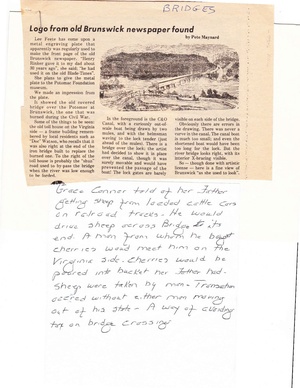 BRIDGES
Logo from old Brunswick newspaper found
by Pete Maynard
Lee Feete has come upon a
metal engraving plate that
apparently was regularly used to
make the front page of the old
Brunswick newspaper. "Henry
gave it to my dad about
30 years ago", she said, "he had
used it on the old Blade-Times".
She plans to give the metal
plate to the Potomac Foundation
museum.
We made an impression from
the plate.
It showed the old covered
bridge over the Potomac at
Brunswick, the one that was
burned during the Civil War.
Some of the things to be seen:
the old toll house at the Virginia
side - a frame building remem-
bered by local residents such as
"Doc" Watson, who recalls that it
was also right at the end of the
iron bridge built to replace the
burned one. To the right of the
toll house is probably the "shun"
road used to by-pass the bridge
when the river was low enough
to be forded.
In the foreground is the C&O
Canal, with a curiously out-of-
scale boat being drawn by two
mules, and with the helmsman
waving to the lock tender (just
ahead of the mules). There is a
bridge over the lock; the artist
has omitted to show it in place
over the canal, though it was
surely movable and would have
prevented the passage of the
boat! The lock gates are barely
visible on each side of the bridge.
Obviously there are errors in
the drawing. There was never a
curve in the canal. The canal boat
is much too small; and even its
shortened boat would have been
too long for the lock. But the
river bridge looks right, with its
interior X-bracing visible.
So - though done with artistic
license - here is a fine view of
Brunswick "as she used to look".
Grace Connor told of her Father
getting sheep from loaded cattle cars
on railroad tracks. He would
drive sheep across Bridge to its
end. A man from whom he bought
cherries would meet him on the
Virginia side. Cherries would be
poured into bucket her Father had.
Sheep were taken by man. Transaction
occred without either man moving
out of his state - A way of avoiding
tax on bridge crossing